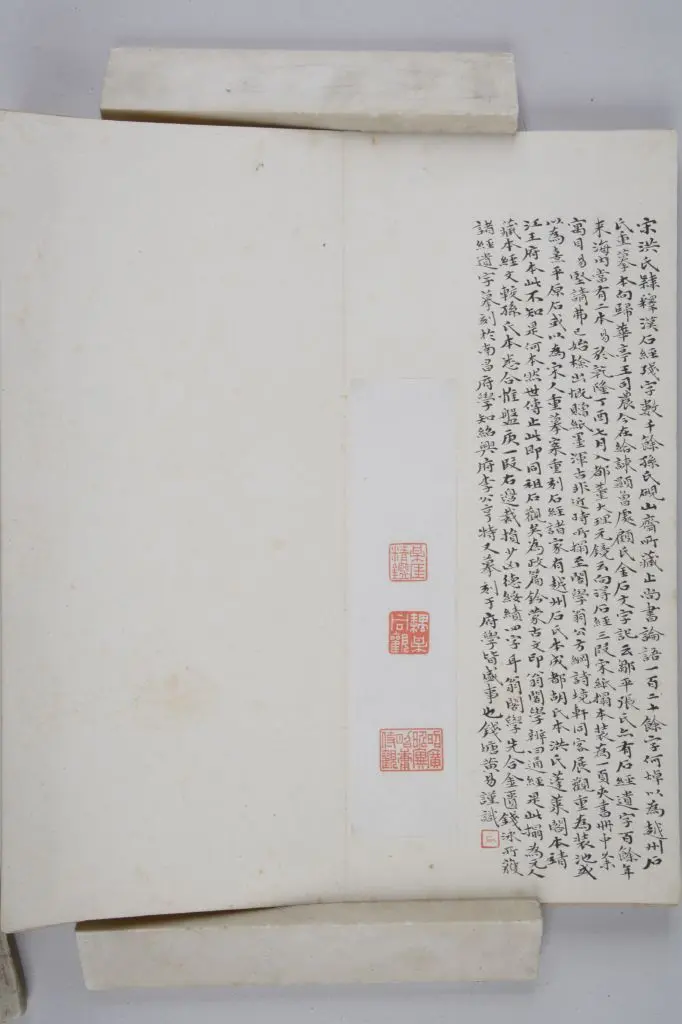 宋洪氏隸釋漢石經殘字數千餘孫氏硯山齋所藏止尚書論語一百二十餘字何焯以為越州石
氏重摹本向歸華亭王司農今在給諫顥曾處顧氏金石文字記云鄒平張氏亦有石經遺字百餘年
來海內當有二本易於乾隆丁酉七月入都董大理元鏡云向得石經三段宋紙搨本裝為一頁夾書冊中
寓目易堅請弗已始檢出慨贈紙墨渾古非近時所搨至閣學翁公方綱詩境軒同客展觀重為裝池或
以為熹平原石或以為宋人重摹案重刻石經諸家有越州石氏本成都胡氏本洪氏蓬萊閣本靖
江王府本此不知是何本然世傳止此即同祖石觀矣為政篇鈐蒙古文印翁閣學辨曰通經是此搨為元人
藏本經文較孫氏本悉合惟盤庚一段右邊裁損少山德綏績四字耳翁閣學先合金匱錢氏所獲
諸經遺字摹刻於南昌府學知紹興府李公亨特又摹刻于府學皆盛事也錢塘黃易謹識